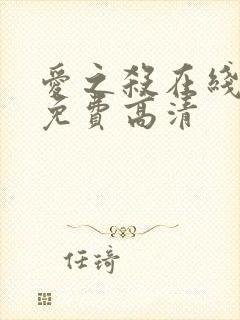 愛之殺在綫
免費高清
任琦